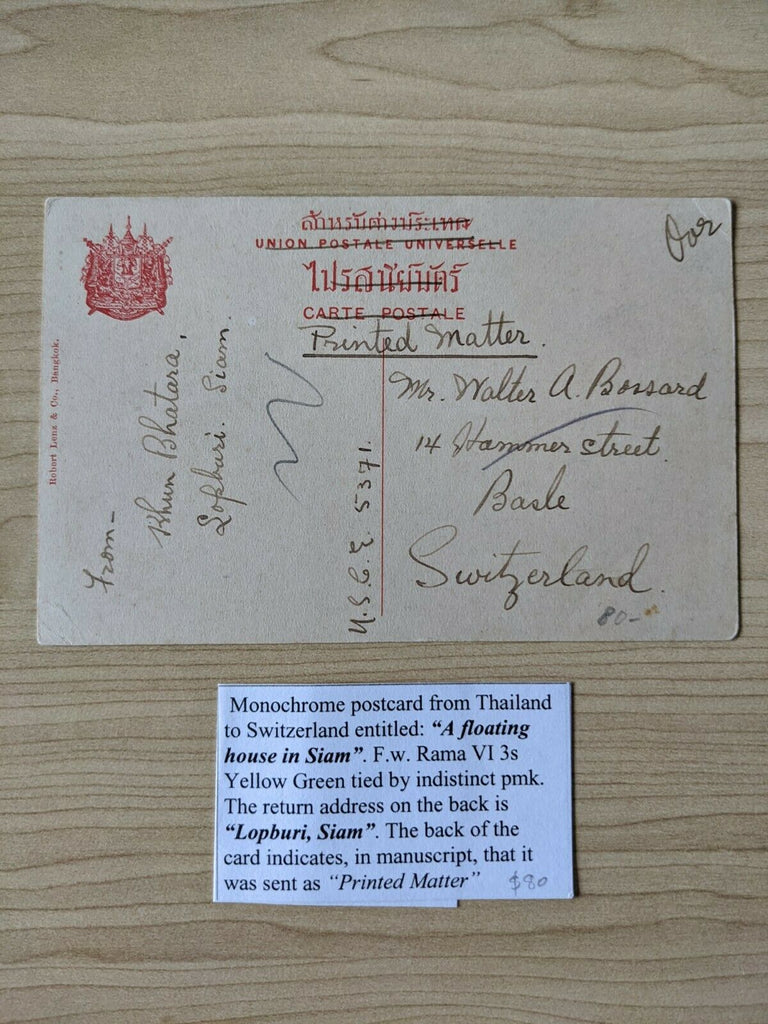 สำหรับต่างประเทศ
UNION POSTALE UNIVERSELLE
ไปรสนียบัตร์
CARTE POSTALE
Printed Matter.
Mr. Walter A. Bossard
14 Hammer Street.
Basle
Switzerland.
80-
U.S.C.E. 5371.
From—
Khun Bhatara,
Lopburi. Siam.
Robert Lenz & Co., Bangkok.
Monochrome postcard from Thailand
to Switzerland entitled: “A floating
house in Siam”. F.w. Rama VI 3s
Yellow Green tied by indistinct pmk.
The return address on the back is
“Lopburi, Siam”. The back of the
card indicates, in manuscript, that it
was sent as “Printed Matter”
$80